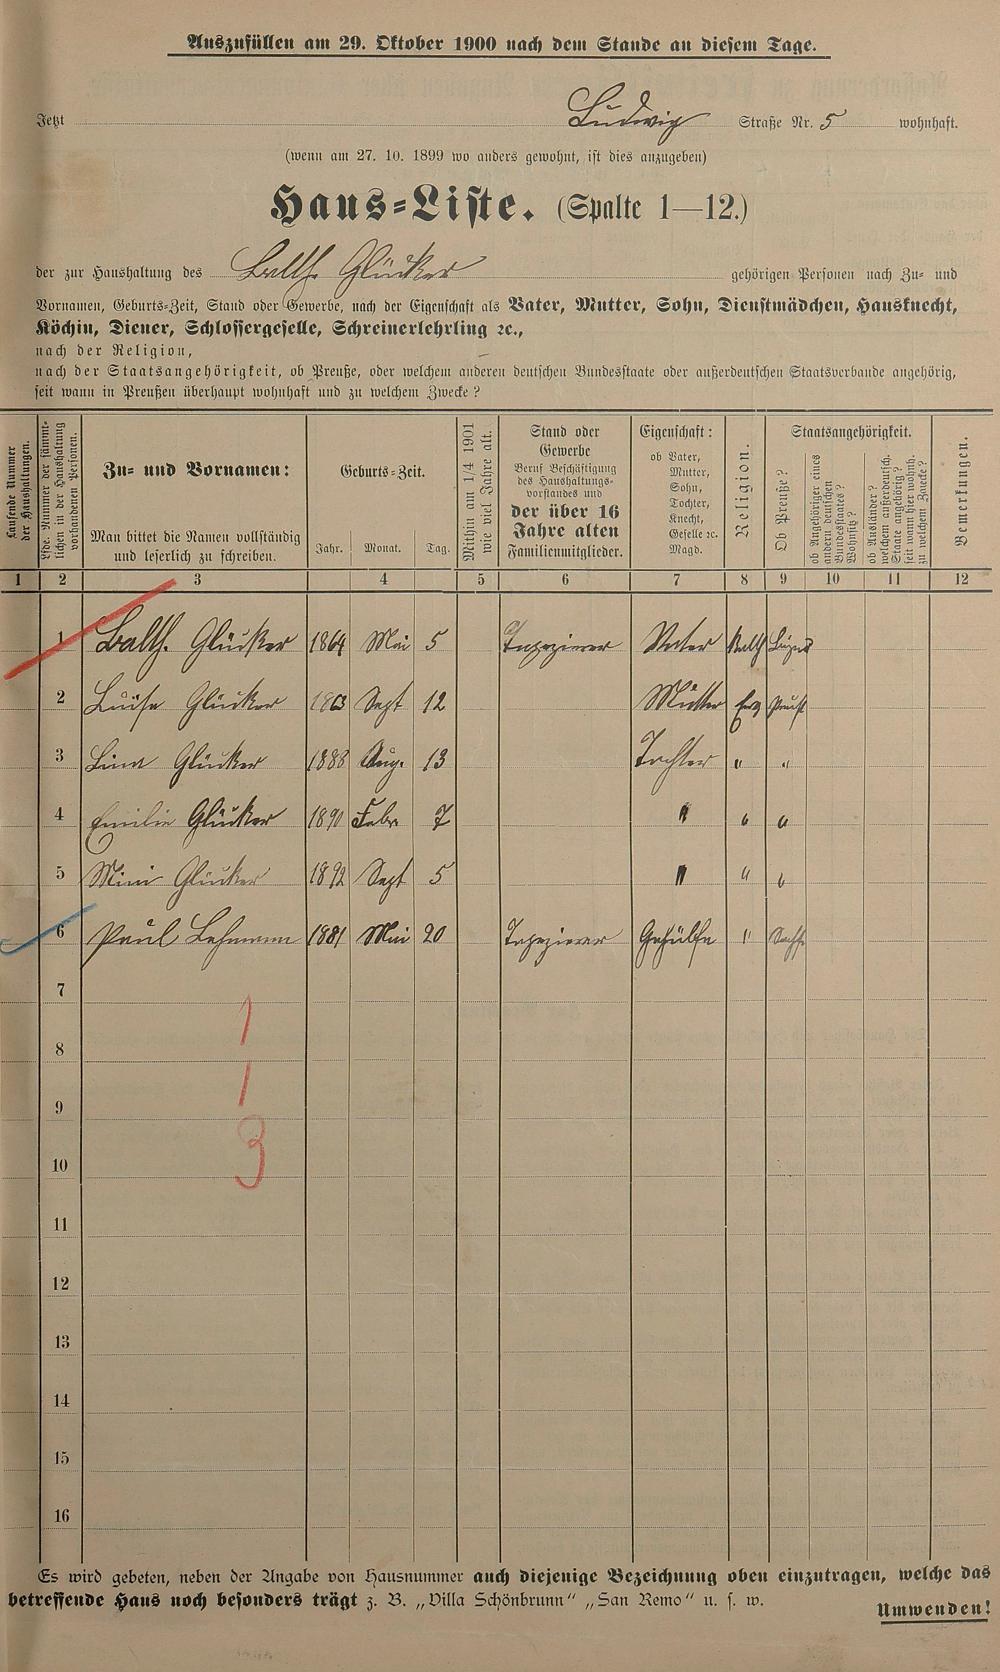 Auszufüllen am 29. Oktober 1900 nach dem Stande an diesem Tage.
Jetzt Ludwig Straße Nr. 5 wohnhaft.
(wenn am 27. 10. 1899 wo anders gewohnt, ist dies anzugeben)
Haus-Liste. (Spalte 1—12.)
der zur Haushaltung des Balth. Glücker gehörigen Personen nach Zu- und
Vornamen, Geburts-Zeit, Stand oder Gewerbe, nach der Eigenschaft als Vater, Mutter, Sohn, Dienstmädchen, Hausknecht,
Köchin, Diener, Schlossergeselle, Schreinerlehrling ꝛc.,
nach der Religion,
nach der Staatsangehörigkeit, ob Preuße, oder welchem anderen deutschen Bundesstaate oder außerdeutschen Staatsverbande angehörig,
seit wann in Preußen überhaupt wohnhaft und zu welchem Zwecke?
Laufende Nummer
der Haushaltungen.
Lfde. Nummer der sämmt-
lichen in der Haushaltung
vorhandenen Personen.
Zu- und Vornamen:
Man bittet die Namen vollständig
und leserlich zu schreiben.
Geburts-Zeit.
Jahr. Monat. Tag.
Mithin am 1/4 1901
wie viel Jahre alt.
Stand oder
Gewerbe
Beruf Beschäftigung
des Haushaltungs-
vorstandes und
der über 16
Jahre alten
Familienmitglieder.
Eigenschaft:
ob Vater,
Mutter,
Sohn,
Tochter,
Knecht,
Geselle ꝛc.
Magd.
Religion.
Staatsangehörigkeit.
Ob Preuße?
ob Angehöriger eines
andern deutschen
Bundesstaates?
Wohnsitz?
ob Ausländer?
welchem außerdeutsch.
Staate angehörig?
seit wann hier wohnh.
zu welchem Zwecke?
Bemerkungen.
1 2 3 4 5 6 7 8 9 10 11 12
1 Balth. Glücker 1864 Mai 5 Tapezierer Vater Kath
2 Luise Glücker 1863 Sept 12 Mutter Evg Preuß
3 Lina Glücker 1888 Aug. 13 Tochter " "
4 Emilie Glücker 1890 Febr 7 " " "
5 Mini Glücker 1892 Sept 5 " " "
6 Paul Lehmann 1881 Mai 20 Tapezierer Gehülfe " Sachse
7
8
9
10
11
12
13
14
15
16
1
1
3
Es wird gebeten, neben der Angabe von Hausnummer auch diejenige Bezeichnung oben einzutragen, welche das
betreffende Haus noch besonders trägt z. B. „Villa Schönbrunn“ „San Remo“ u. s. w.
Umwenden!